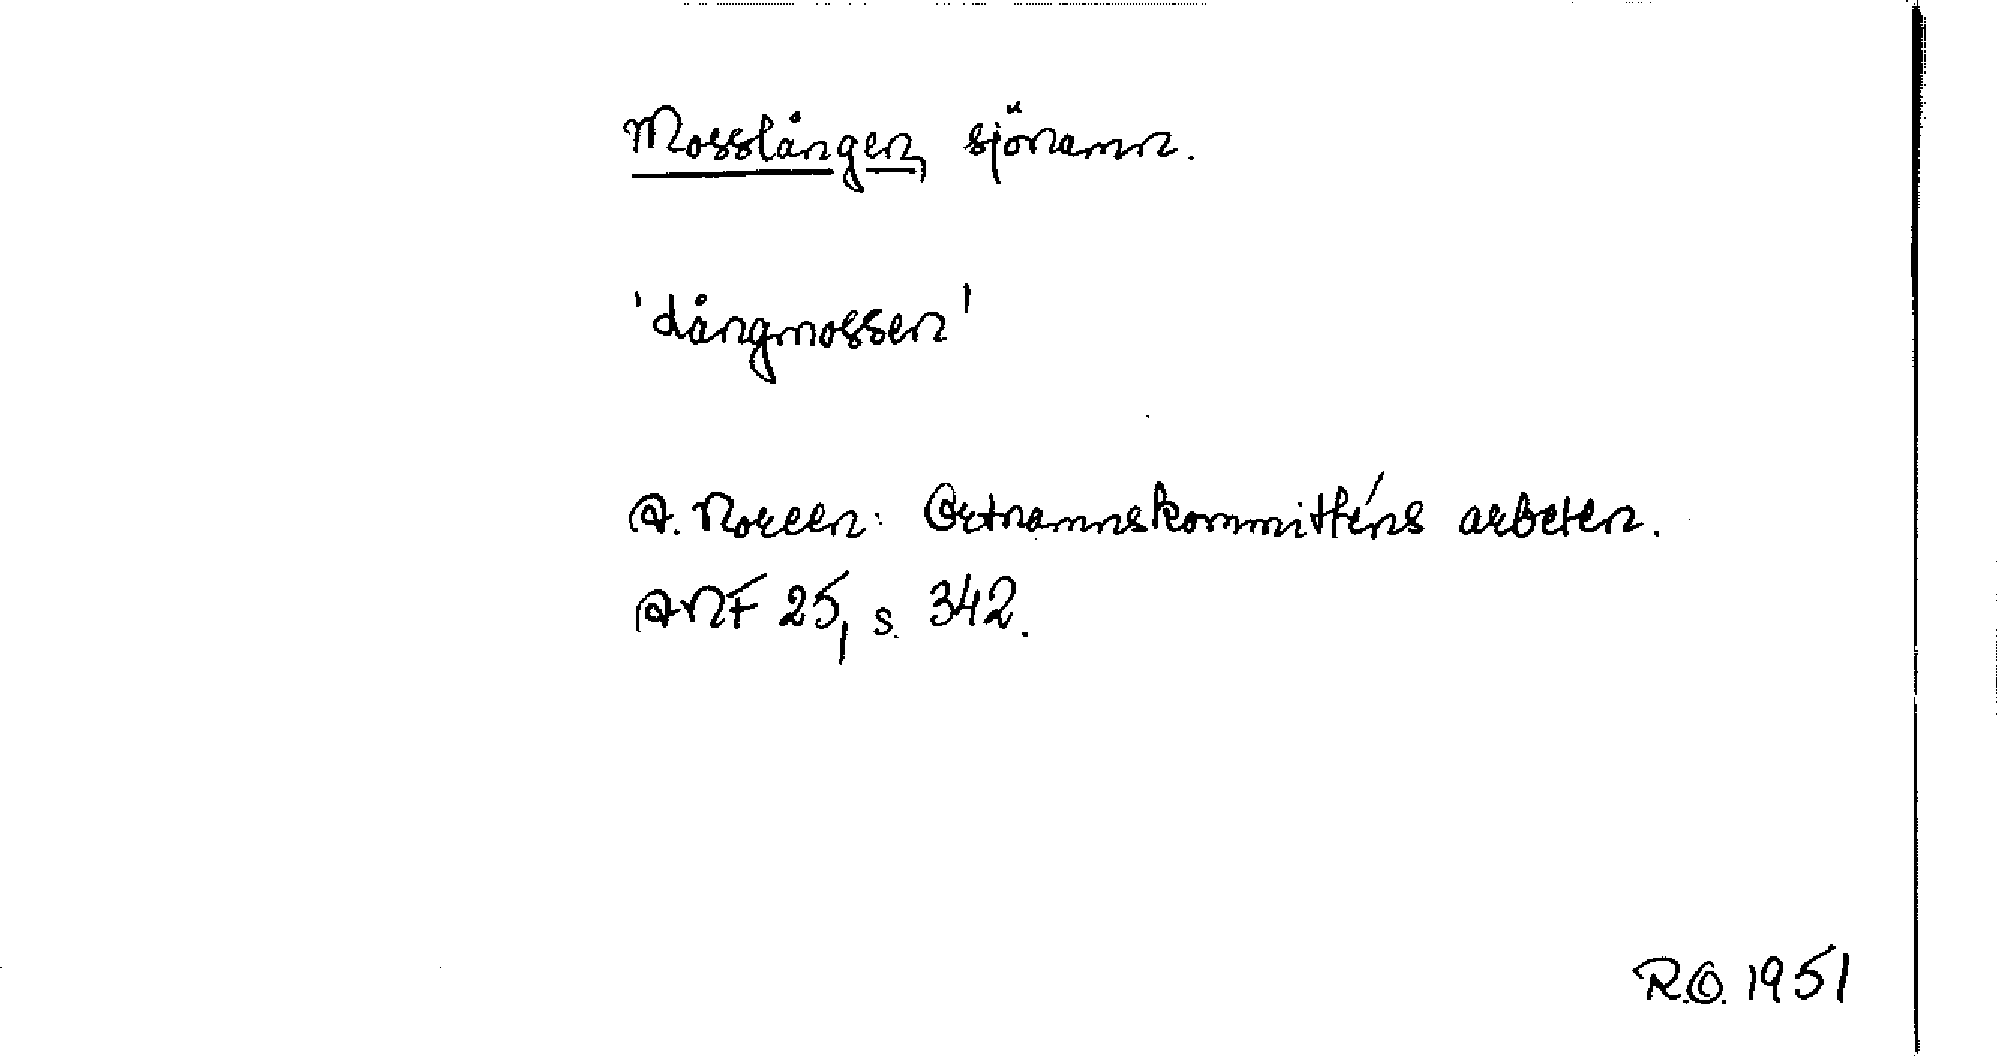 Mosslången, sjönamn.
'Långmossen'
A. Noreen: Ortnamnskommitténs arbeten.
ANF 25, s. 342.
R.O. 1951